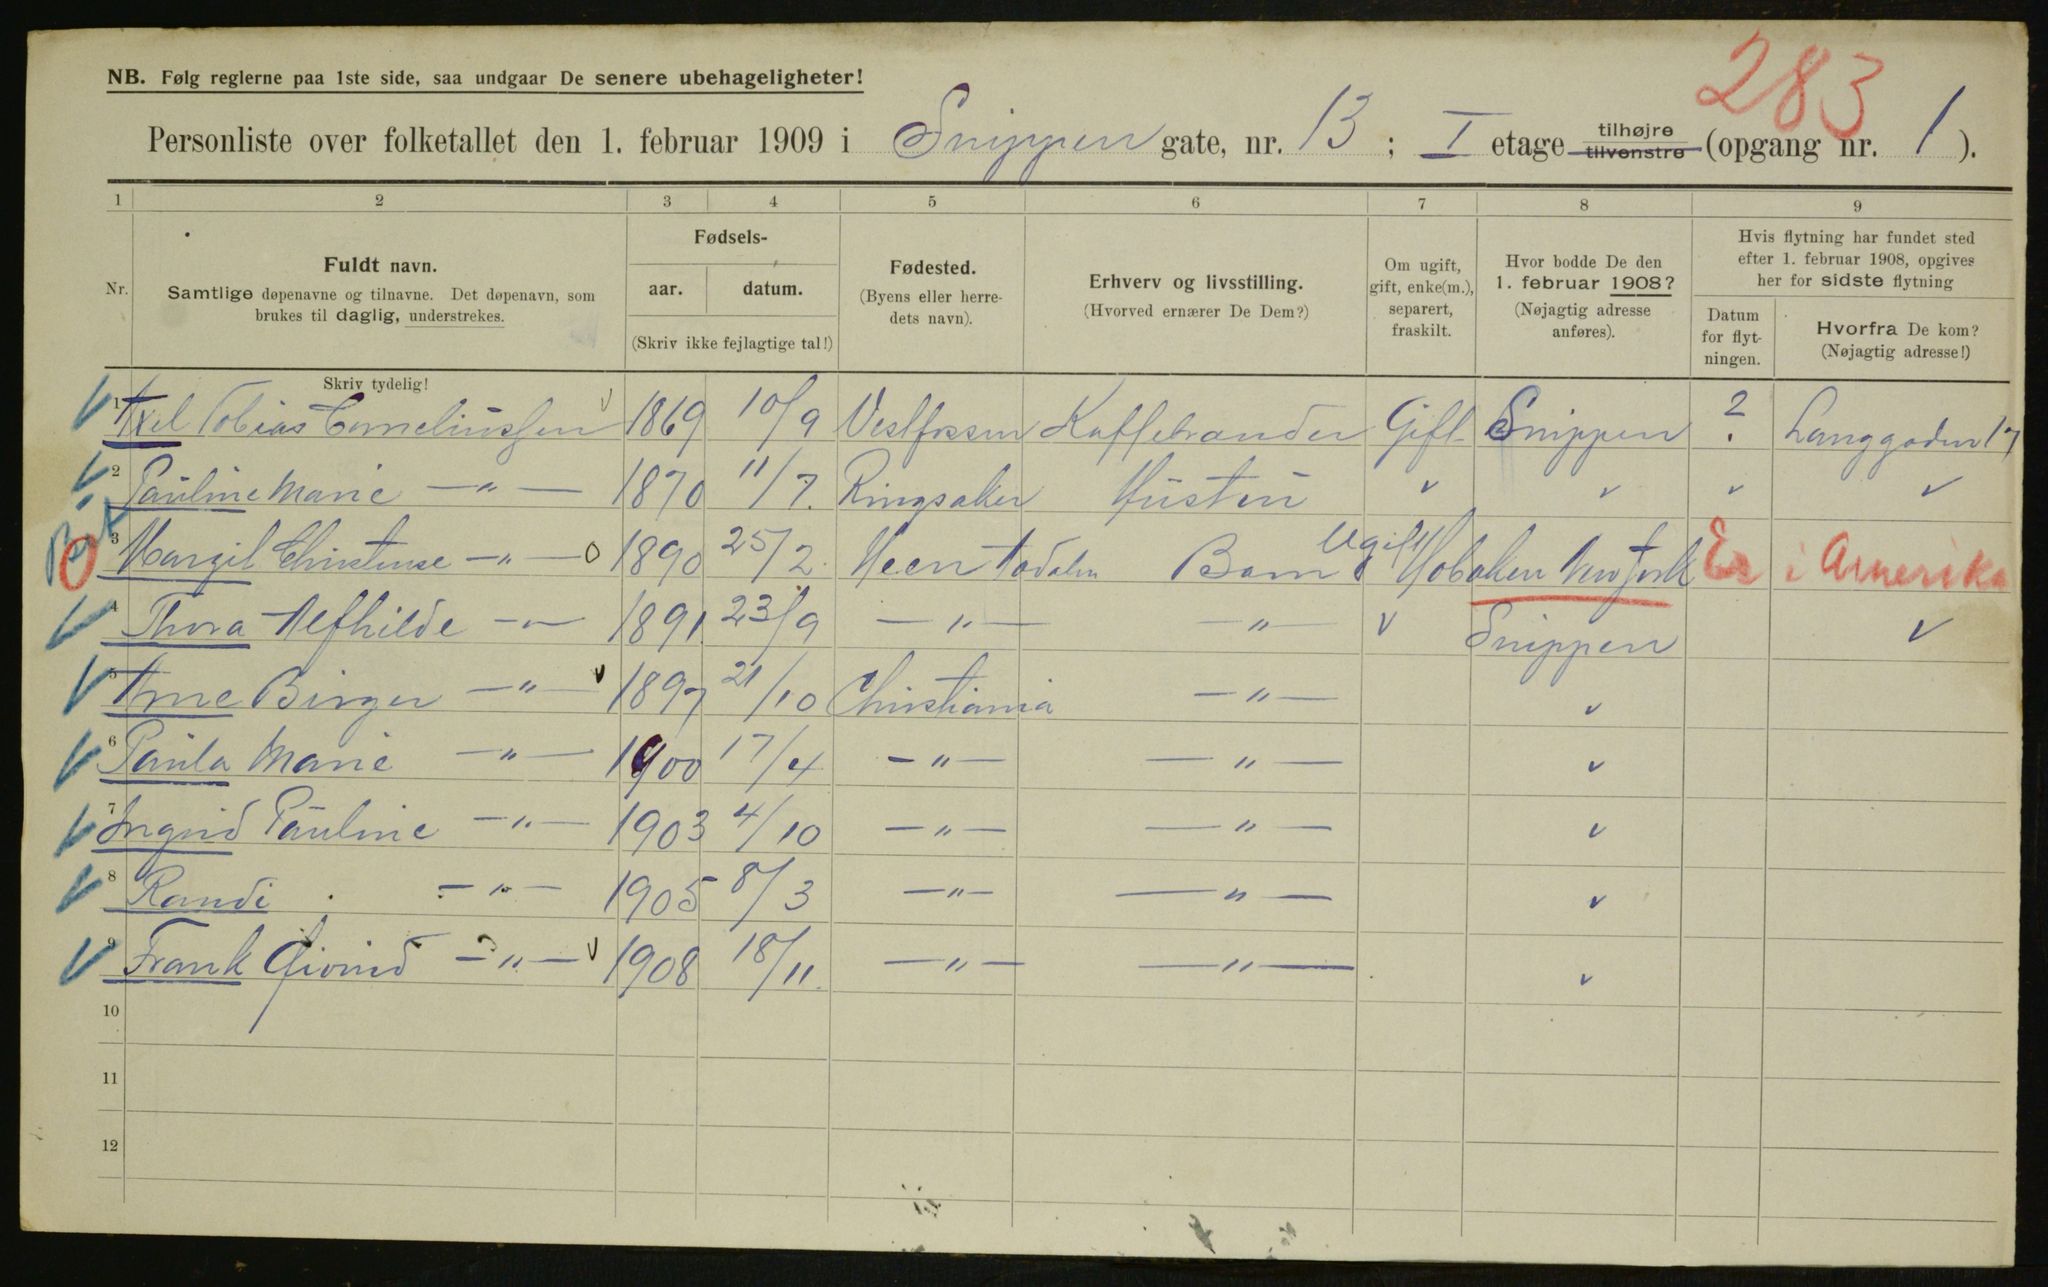 283
NB. Følg reglerne paa 1ste side, saa undgaar De senere ubehageligheter!
Personliste over folketallet den 1. februar 1909 i Snippen gate, nr. 13; I etage tilhøjre tilvenstre (opgang nr. 1).
1 2 3 4 5 6 7 8 9
Nr.
Fuldt navn.
Samtlige døpenavne og tilnavne. Det døpenavn, som
brukes til daglig, understrekes.
Skriv tydelig!
Fødsels-
aar. datum.
(Skriv ikke fejlagtige tal!)
Fødested.
(Byens eller herre-
dets navn).
Erhverv og livsstilling.
(Hvorved ernærer De Dem?)
Om ugift,
gift, enke(m.),
separert,
fraskilt.
Hvor bodde De den
1. februar 1908?
(Nøjagtig adresse
anføres).
Hvis flytning har fundet sted
efter 1. februar 1908, opgives
her for sidste flytning
Datum
for flyt-
ningen.
Hvorfra De kom?
(Nøjagtig adresse!)
1 Axel Tobias Corneliussen 1869 10/9 Vestfossen Kaffebrander Gift Snippen ? Langgaden 17
2 Pauline Marie —"— 1870 11/7. Ringsaker Hustru
3 Margit Christense —"— 1890 25/2 Barn Ugift Hoboken New York Er i Amerika
4 Thora Alfhilde —"— 1891. 23/9 —"— —"— Snippen
5 Arne Birger —"— 1897 21/10 Christiania —"—
6 Paula Marie —"— 1900 17/4 —"— —"—
7 Ingrid Pauline —"— 1903 4/10 —"— —"—
8 Randi —"— 1905 8/3 —"— —"—
9 Frank Øivind —"— 1908 18/11. —"— —"—
10
11
12